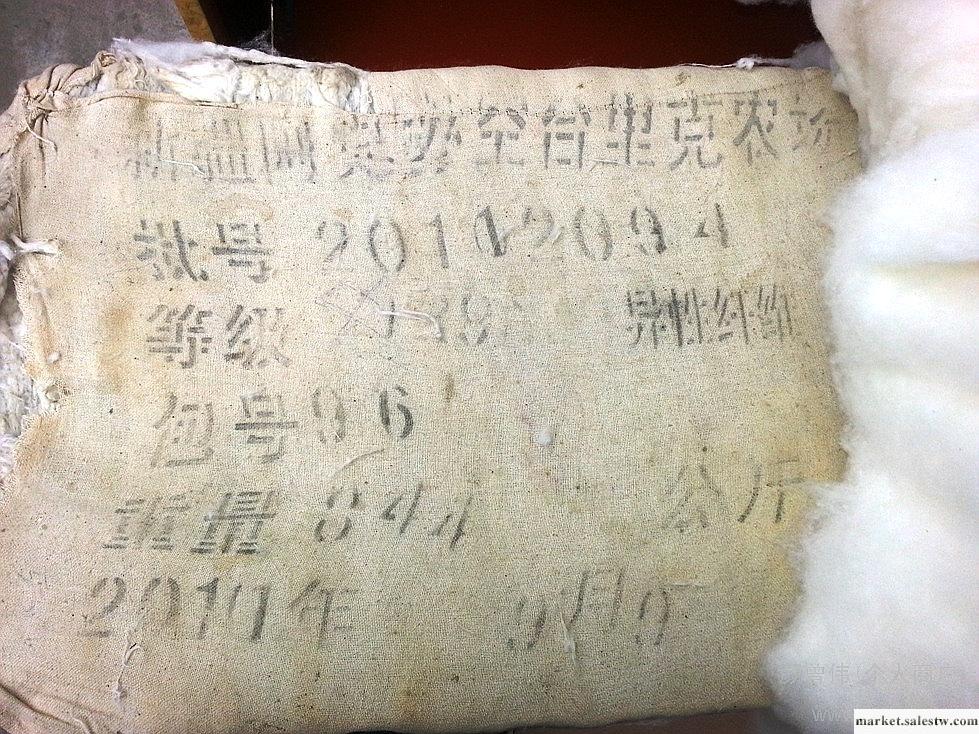 新疆阿克苏全台里克农场
批号 2010
等级 异性纤维
包号 96
重量 844 公斤
2010年 9月9
market.salestw.com